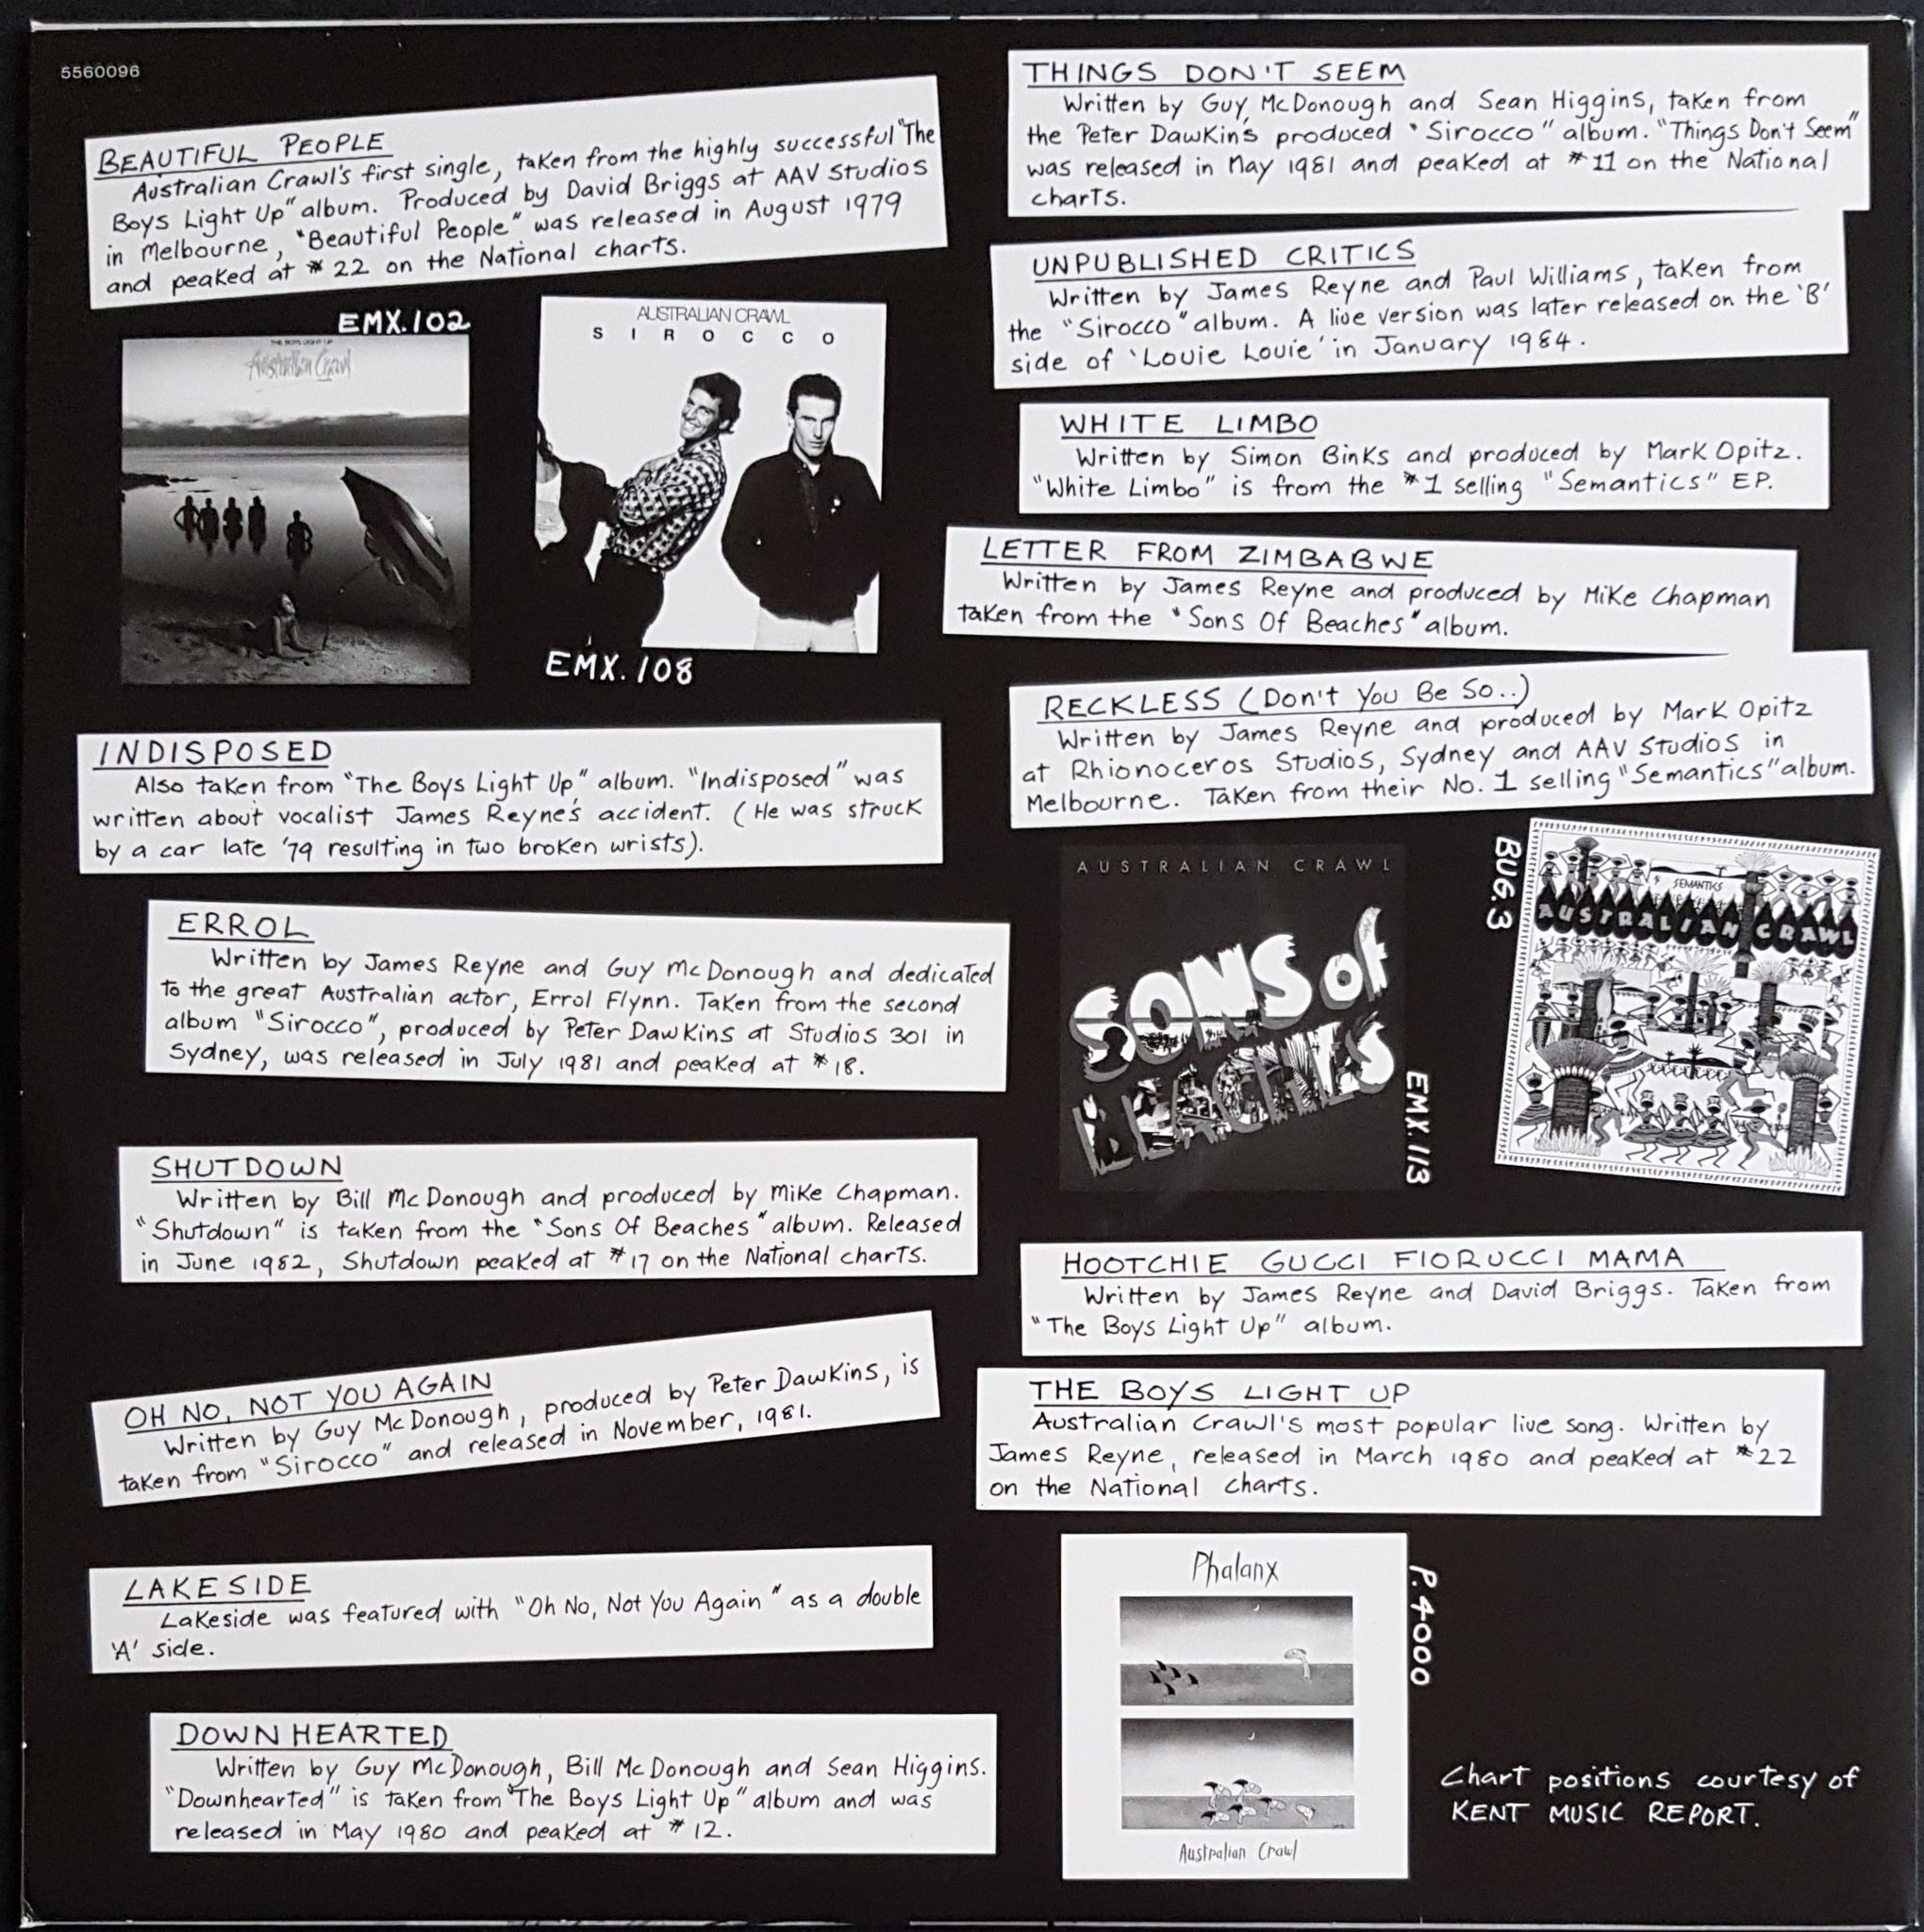 5560096
BEAUTIFUL PEOPLE
Australian Crawl's first single, taken from the highly successful "The
Boys Light Up" album. Produced by David Briggs at AAV Studios
in Melbourne, "Beautiful People" was released in August 1979
and peaked at #22 on the National charts.
EMX.102
THE BOYS LIGHT UP
Australian Crawl
AUSTRALIAN CRAWL
SIROCCO
EMX.108
INDISPOSED
Also taken from "The Boys Light Up" album. "Indisposed" was
written about vocalist James Reyne's accident. (He was struck
by a car late '79 resulting in two broken wrists).
ERROL
Written by James Reyne and Guy McDonough and dedicated
to the great Australian actor, Errol Flynn. Taken from the second
album "Sirocco", produced by Peter Dawkins at Studios 301 in
Sydney, was released in July 1981 and peaked at #18.
SHUTDOWN
Written by Bill McDonough and produced by Mike Chapman.
"Shutdown" is taken from the "Sons Of Beaches" album. Released
in June 1982, Shutdown peaked at #17 on the National charts.
OH NO, NOT YOU AGAIN
Written by Guy McDonough, produced by Peter Dawkins, is
taken from "Sirocco" and released in November, 1981.
LAKESIDE
Lakeside was featured with "Oh No, Not You Again" as a double
'A' side.
DOWNHEARTED
Written by Guy McDonough, Bill McDonough and Sean Higgins.
"Downhearted" is taken from "The Boys Light Up" album and was
released in May 1980 and peaked at #12.
THINGS DON'T SEEM
Written by Guy McDonough and Sean Higgins, taken from
the Peter Dawkin's produced "Sirocco" album. "Things Don't Seem"
was released in May 1981 and peaked at #11 on the National
charts.
UNPUBLISHED CRITICS
Written by James Reyne and Paul Williams, taken from
the "Sirocco" album. A live version was later released on the 'B'
side of 'Louie Louie' in January 1984.
WHITE LIMBO
Written by Simon Binks and produced by Mark Opitz.
"White Limbo" is from the #1 selling "Semantics" EP.
LETTER FROM ZIMBABWE
Written by James Reyne and produced by Mike Chapman
taken from the "Sons Of Beaches" album.
RECKLESS (Don't You Be So..)
Written by James Reyne and produced by Mark Opitz
at Rhionoceros Studios, Sydney and AAV Studios in
Melbourne. Taken from their No. 1 selling "Semantics" album.
AUSTRALIAN CRAWL
SONS of
BEACHES
EMX.113
BUG.3
SEMANTICS
AUSTRALIAN CRAWL
HOOTCHIE GUCCI FIORUCCI MAMA
Written by James Reyne and David Briggs. Taken from
"The Boys Light Up" album.
THE BOYS LIGHT UP
Australian Crawl's most popular live song. Written by
James Reyne, released in March 1980 and peaked at #22
on the National charts.
Phalanx
Australian Crawl
P.4000
Chart positions courtesy of
KENT MUSIC REPORT.